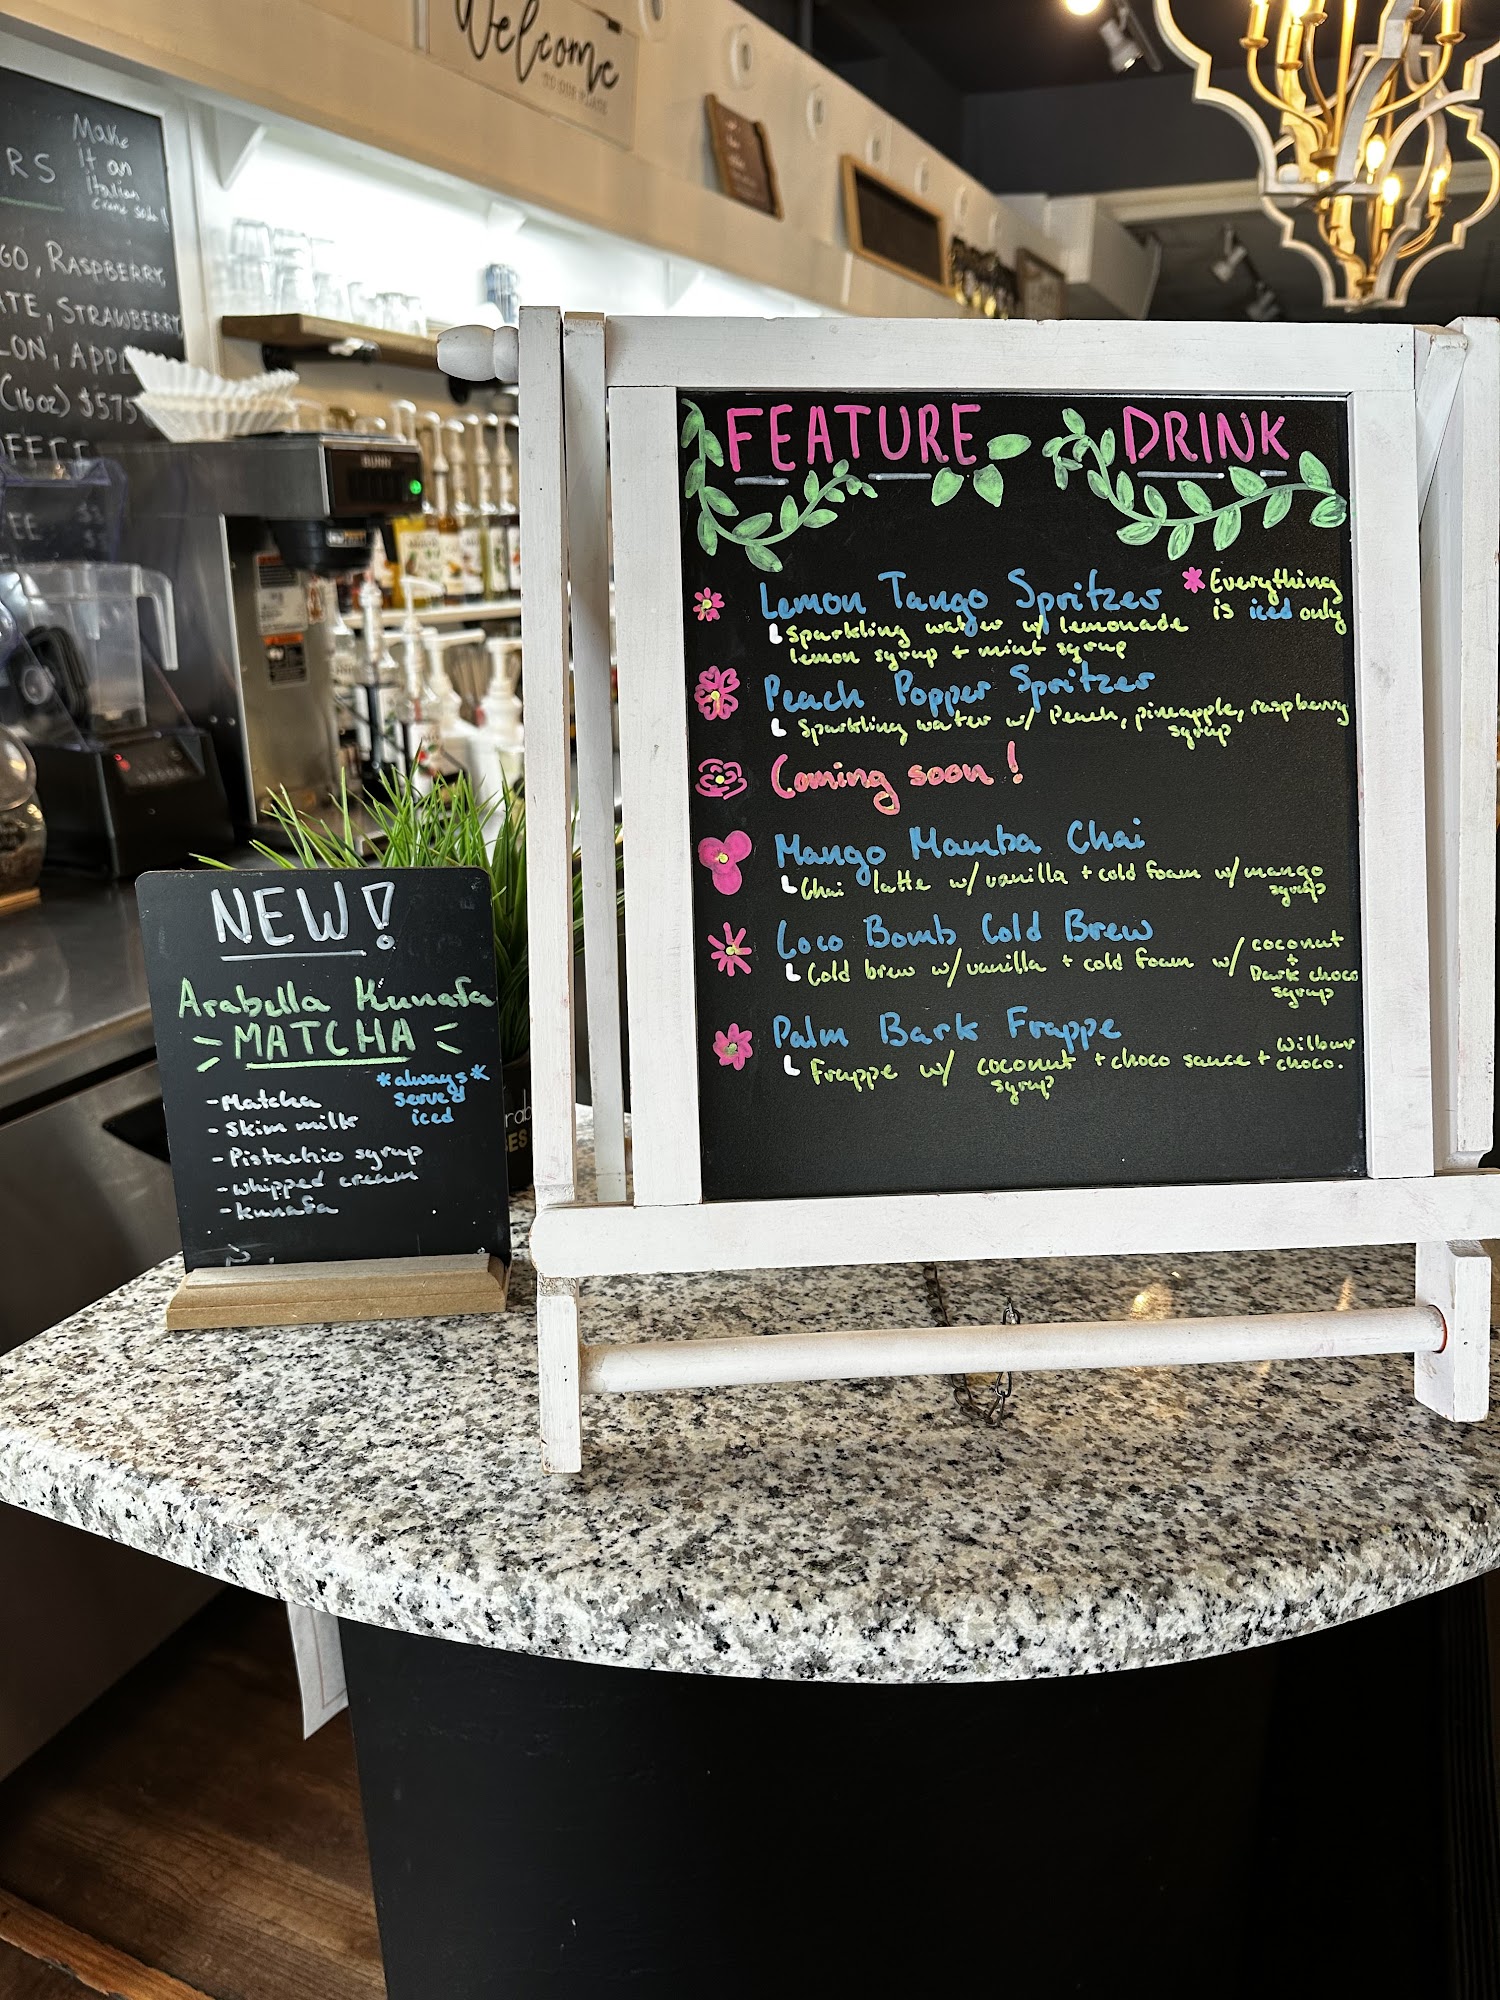 Welcome
TO OUR PLACE
RS
Make
it an
Italian
creme soda!
GO, RASPBERRY,
ATE, STRAWBERRY
LON, APPL
(16oz) $575
BUNN
FEATURE DRINK
Lemon Tango Spritzer
*Everything
is iced only
Sparkling water w/ lemonade
lemon syrup + mint syrup
Peach Popper Spritzer
Sparkling water w/ Peach, pineapple, raspberry
syrup
Coming soon!
Mango Mamba Chai
Chai latte w/ vanilla + cold foam w/ mango
syrup
Coco Bomb Cold Brew
Cold brew w/ vanilla + cold foam w/ coconut
+
Dark choco
syrup
Palm Bark Frappe
Frappe w/ coconut + choco sauce + Wilbur
syrup choco.
NEW!
Arabella Kunafa
MATCHA
*always*
served
iced
-Matcha
-Skim milk
-Pistachio syrup
-whipped cream
-kunafa